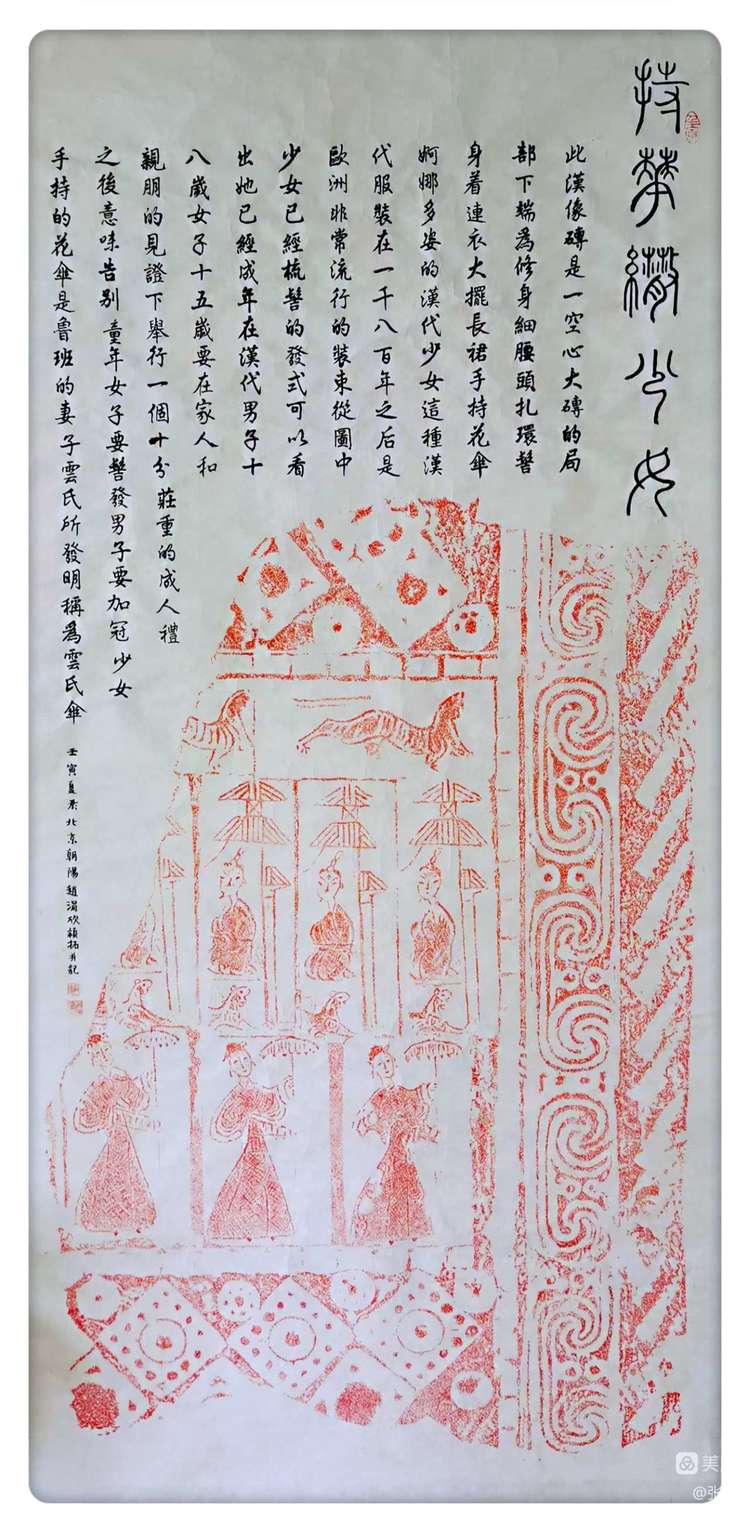 持華繖少女
此漢像磚是一空心大磚的局
部下端為修身細腰頭扎環髻
身着連衣大擺長裙手持花傘
婀娜多姿的漢代少女這種漢
代服裝在一千八百年之后是
歐洲非常流行的裝束從圖中
少女已經梳髻的發式可以看
出她已經成年在漢代男子十
八歲女子十五歲要在家人和
親朋的見證下舉行一個十分莊重的成人禮
之後意味告别童年女子要髻發男子要加冠少女
手持的花傘是魯班的妻子雲氏所發明稱為雲氏傘
壬寅夏於北京朝陽趙
拓并記
美
@张